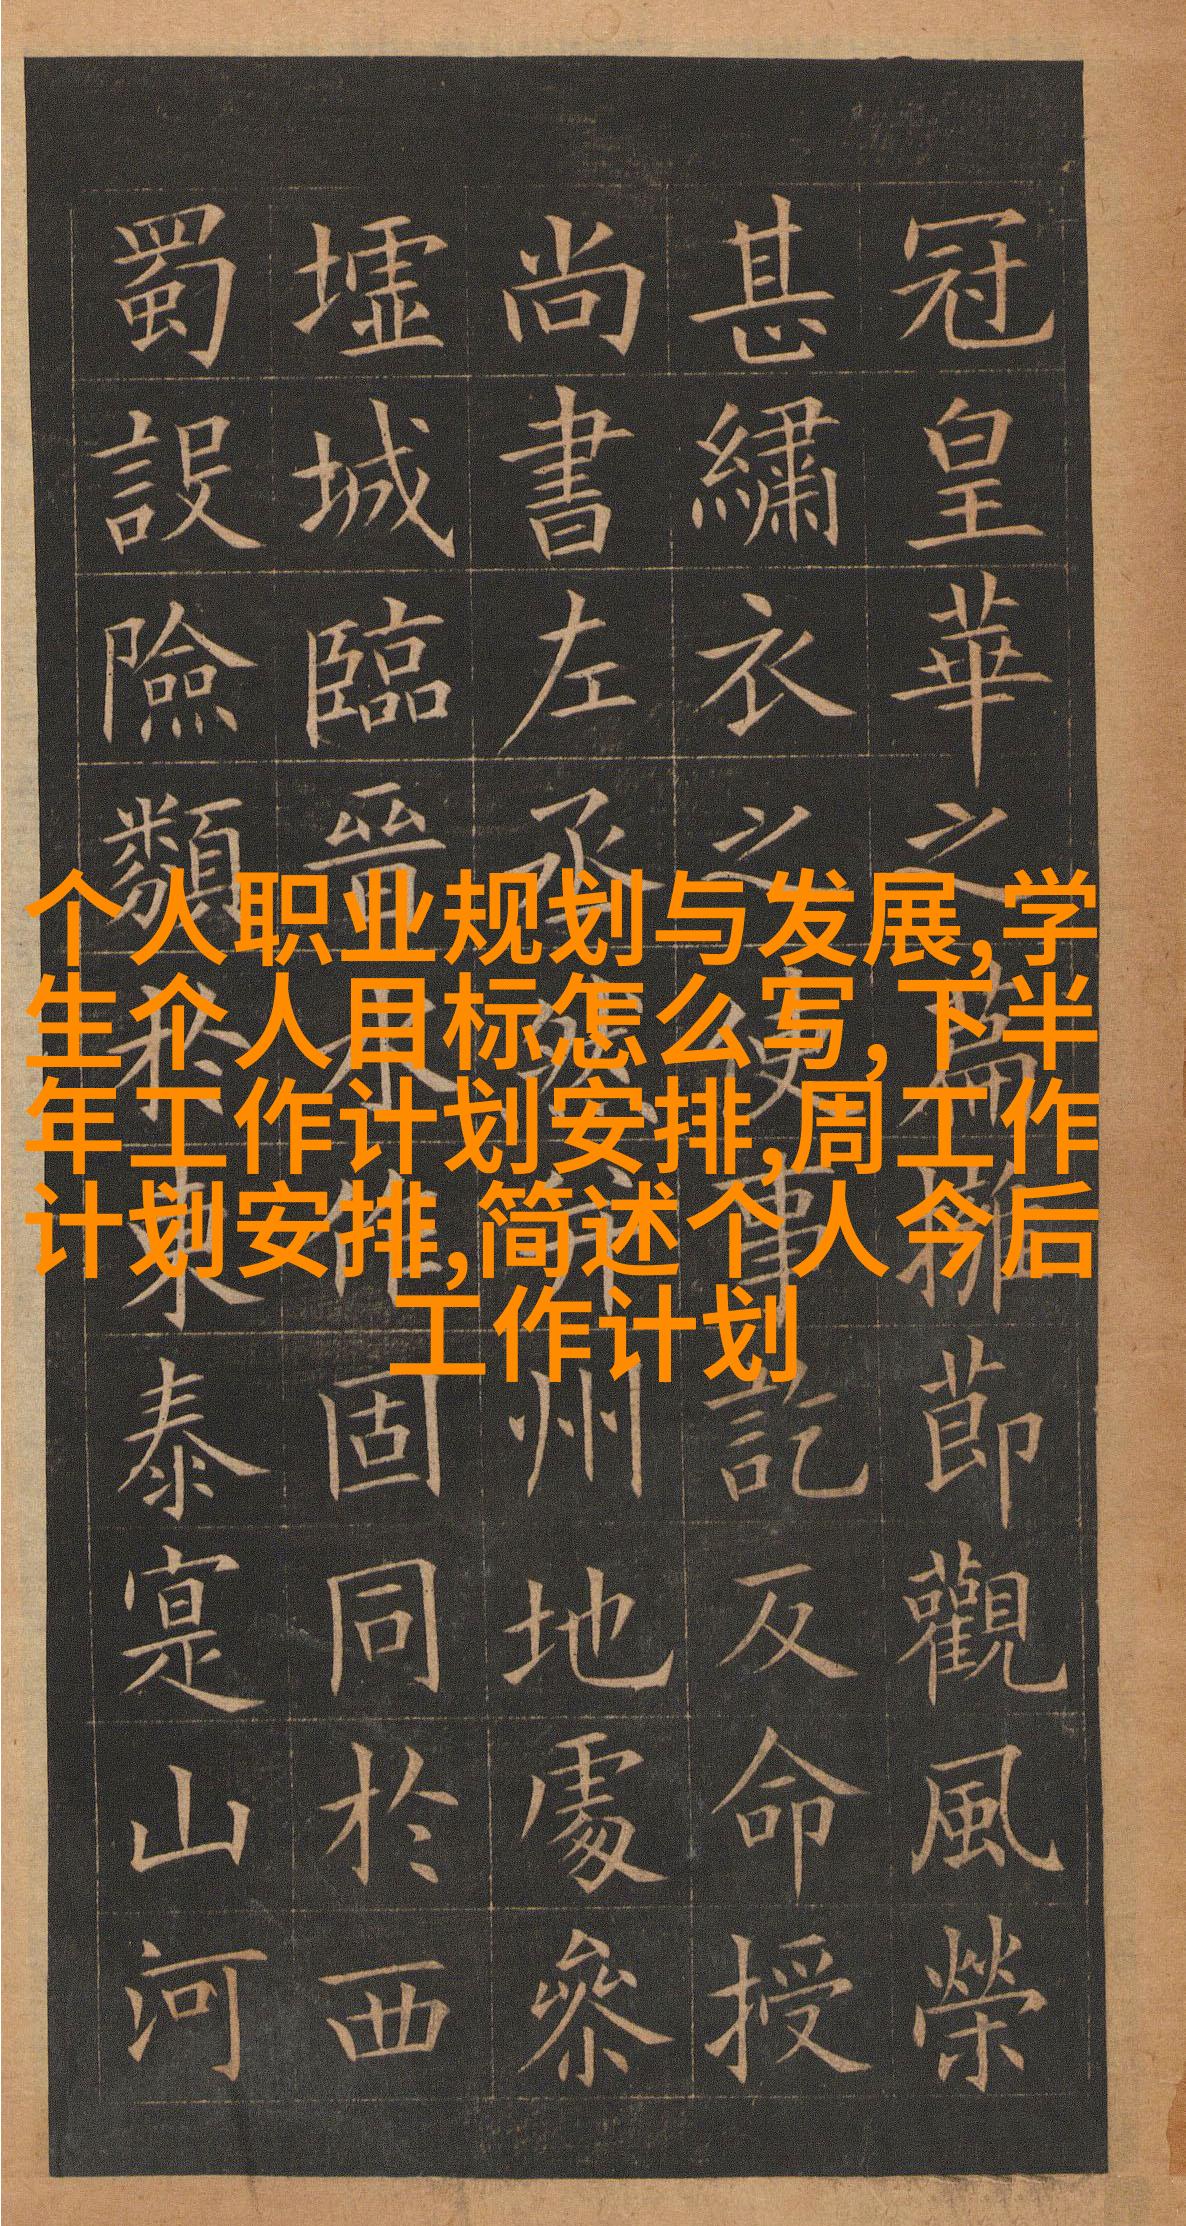 冠皇華之篇擁節觀風榮
甚繡衣之使事訖反命授
尚書左丞然并州地處參
墟城臨晉水作固同於西
蜀設險類於東泰寔山河
个人职业规划与发展,学
生个人目标怎么写,下半
年工作计划安排,周工作
计划安排,简述个人今后
工作计划